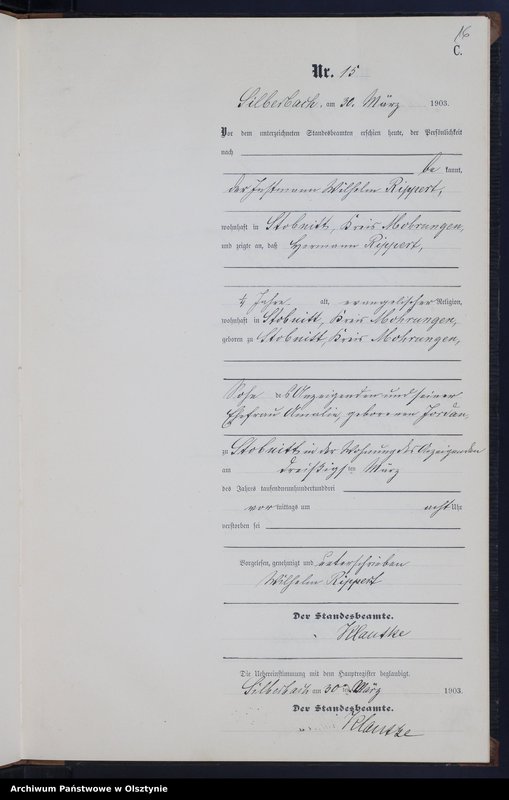 16
C.
Nr. 15
Silberbach, am 30. März 1903.
Vor dem unterzeichneten Standesbeamten erschien heute, der Persönlichkeit
nach
be kannt,
der Instmann Wilhelm Rippert,
wohnhaft in Stobnitt, Kreis Mohrungen,
und zeigte an, daß Hermann Rippert,
1/4 Jahre alt, evangelischer Religion,
wohnhaft in Stobnitt, Kreis Mohrungen,
geboren zu Stobnitt, Kreis Mohrungen,
Sohn des Anzeigenden und seiner
Ehefrau Amalie, geborenen Jordan,
zu Stobnitt, in der Wohnung des Anzeigenden
am dreißigsten März
des Jahres tausendneunhundertunddrei
vormittags um acht Uhr
verstorben sei
Vorgelesen, genehmigt und unterschrieben
Wilhelm Rippert
Der Standesbeamte.
Klautke
Die Uebereinstimmung mit dem Hauptregister beglaubigt.
Silberbach am 30ten März 1903.
Der Standesbeamte.
Klautke
Archiwum Państwowe w Olsztynie